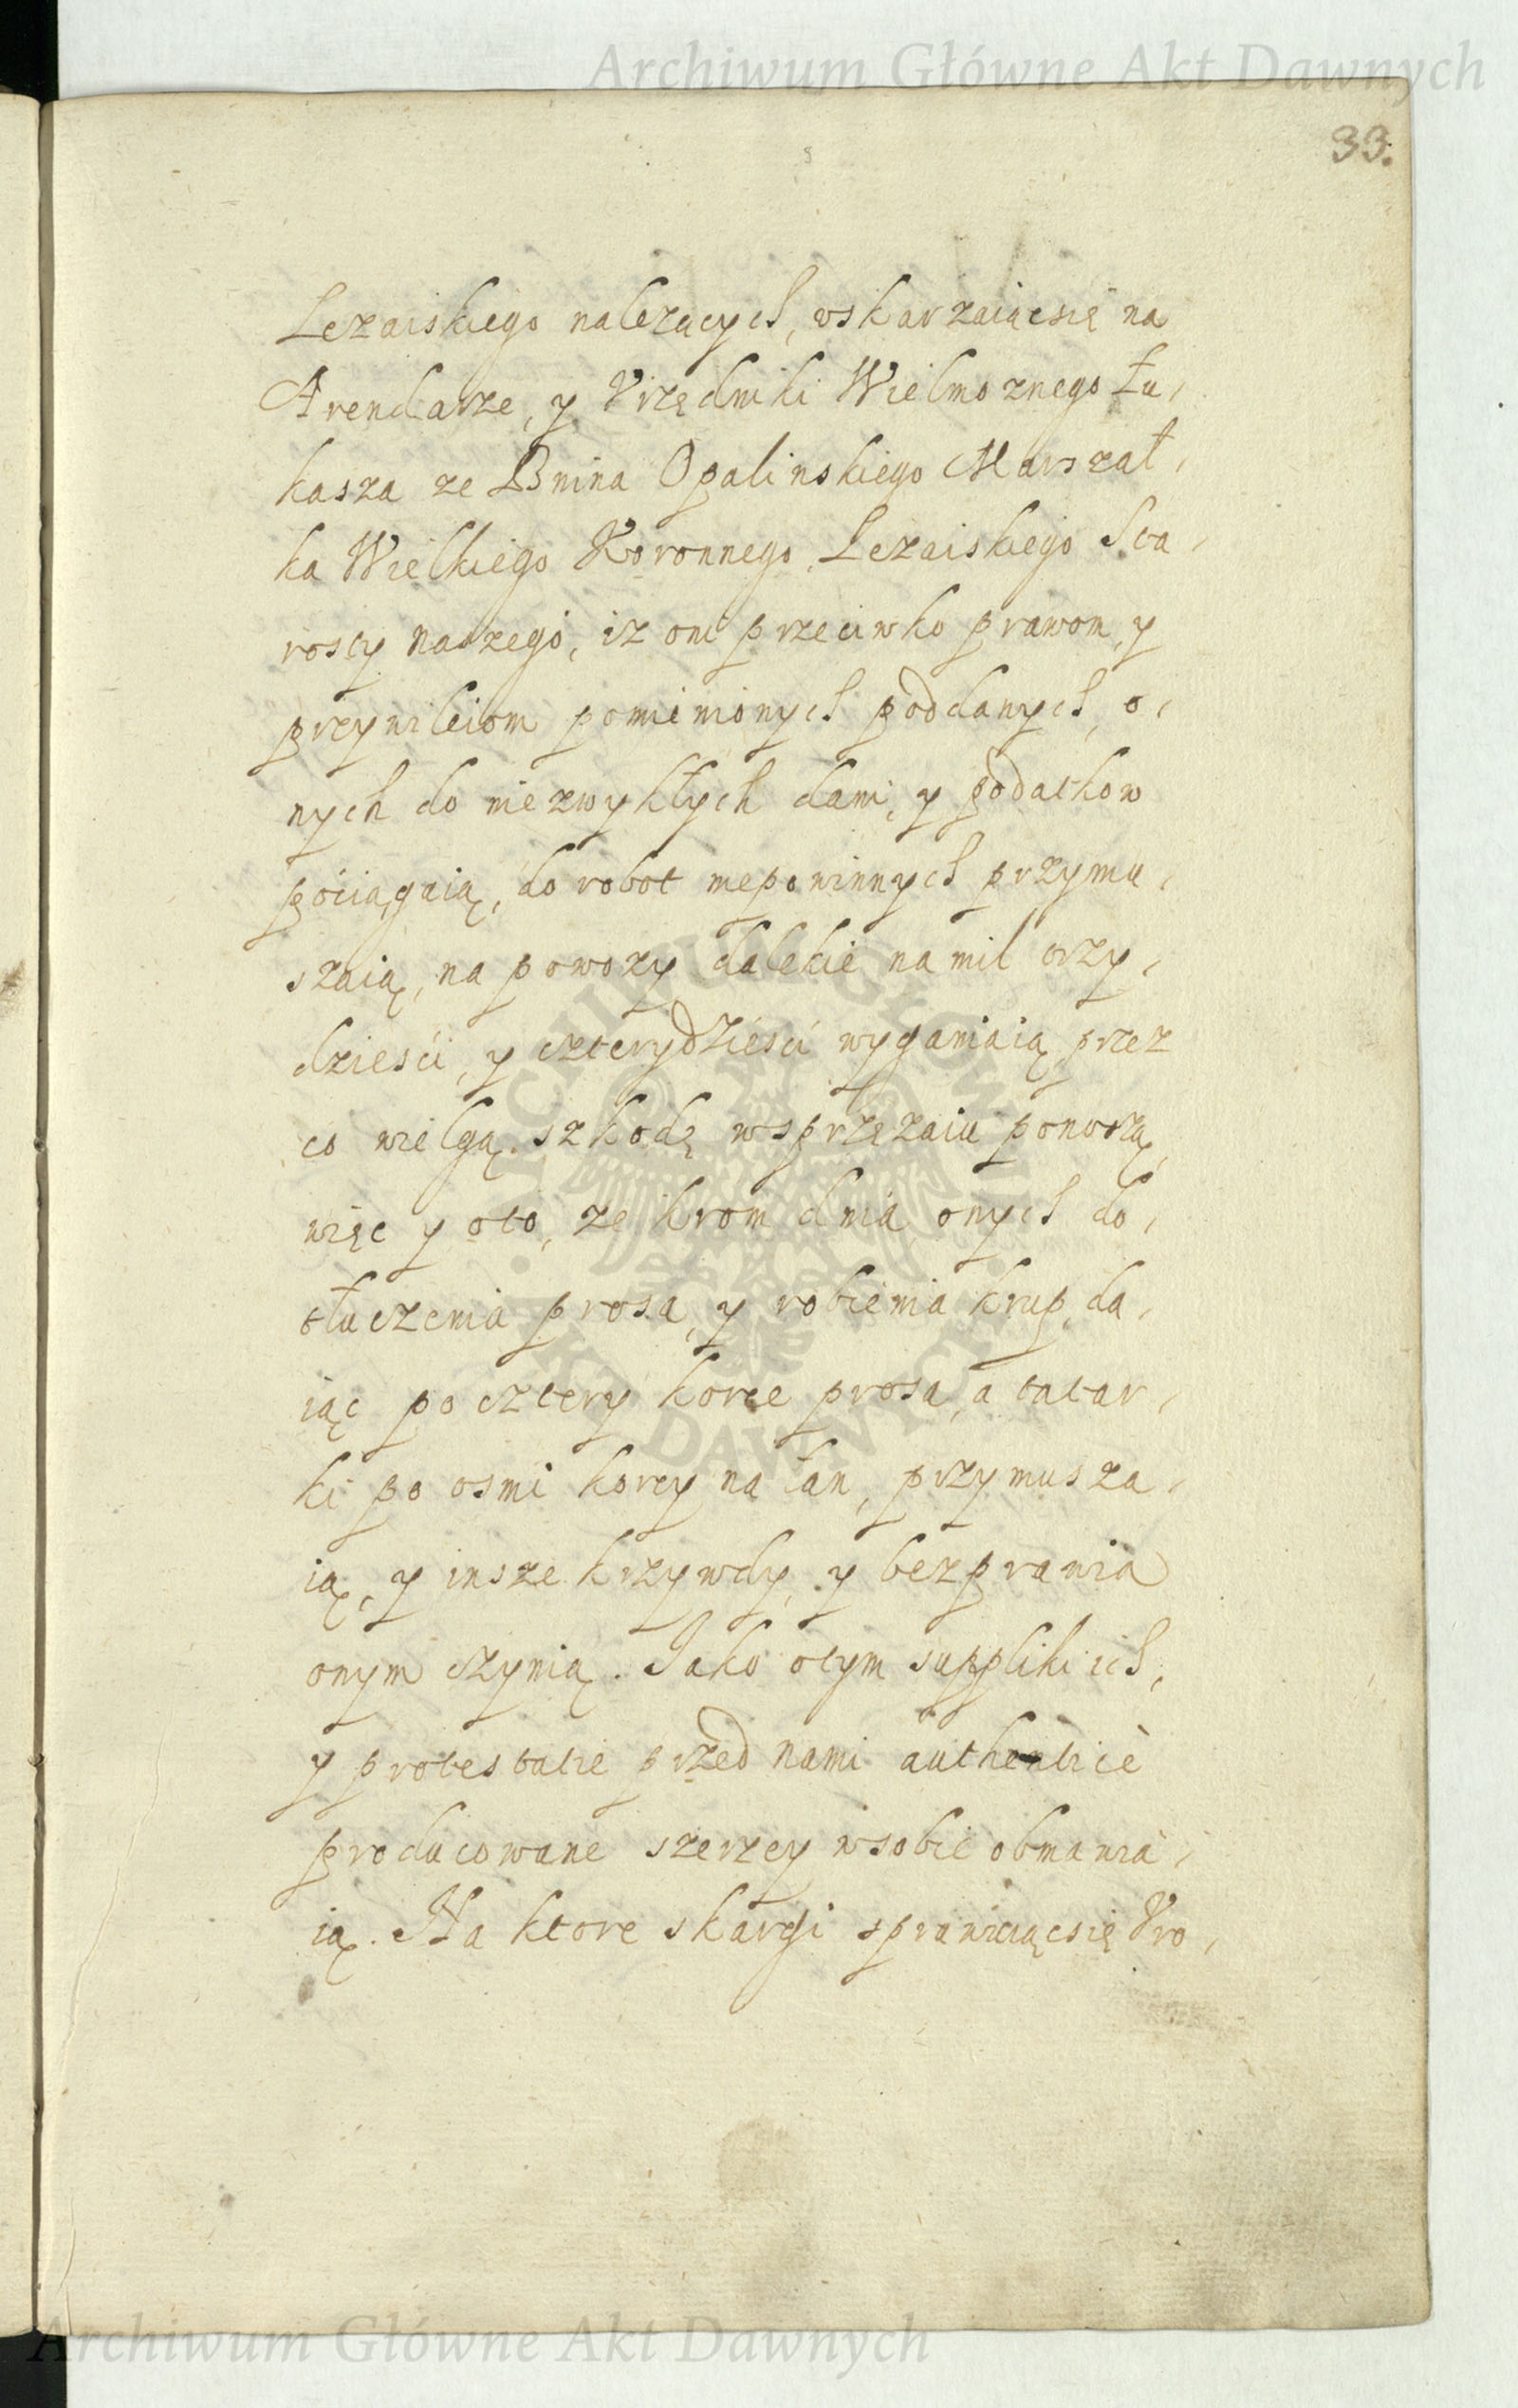 Archiwum Główne Akt Dawnych
33.
Lezaiskiego nalezących, vskarzaiącsię na
Arendarze, y Vrzędniki Wielmoznego Łu,
kasza ze Bnina Opalinskiego Marszał,
ka Wielkiego Koronnego, Lezaiskiego Sta,
rosty naszego, iz oni przeciwko prawom, y
przywileiom pomienionych poddanych, o,
nych do niezwykłych dani, y podatkow
pociągaią, do robot niepowinnych przymu,
szaią, na powozy dalekie na mil trzy,
dziesći, y czterydźiesći wyganiaią, przez
co wielgą szkodę w sprzęzaiu ponoszą,
więc y oto, ze krom dnia onych do,
tłuczenia prosa, y robienia krup, da,
iąc po cztery korce prosa, a tatar,
ki po osmi korcy na łan, przymusza,
ią, y insze krzywdy, y bezprawia
onym czynią. Iako otym suppliki ich,
y protestatie przed nami authenticè
producowane szerzey w sobie obmawia,
ią. Na ktore skargi sprawuiącsię Vro,
ARCHIWUM GŁÓWNE
AKT DAWNYCH
Archiwum Główne Akt Dawnych